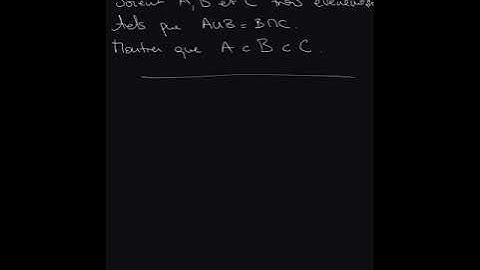 Soient A, B et C trois évènements
tels que A∪B = B∩C.
Montrer que A ⊂ B ⊂ C.